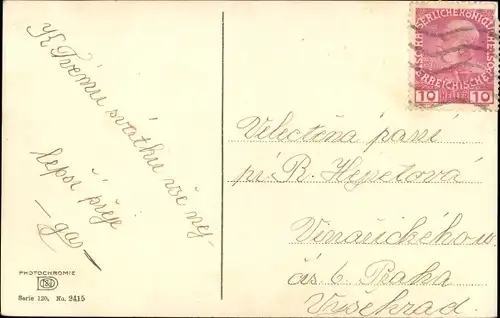 K Tvému svátku vše nej-
lepší přeje
- ga -
Velectěná paní
pí. R. Hepetová
Vinařického u.
čís. 6 Praha
Vyšehrad.
PHOTOCHROMIE
Serie 120, No. 2415
KAISERLICHE KÖNIGLICHE
ÖSTERREICHISCHE
10 HELLER 10